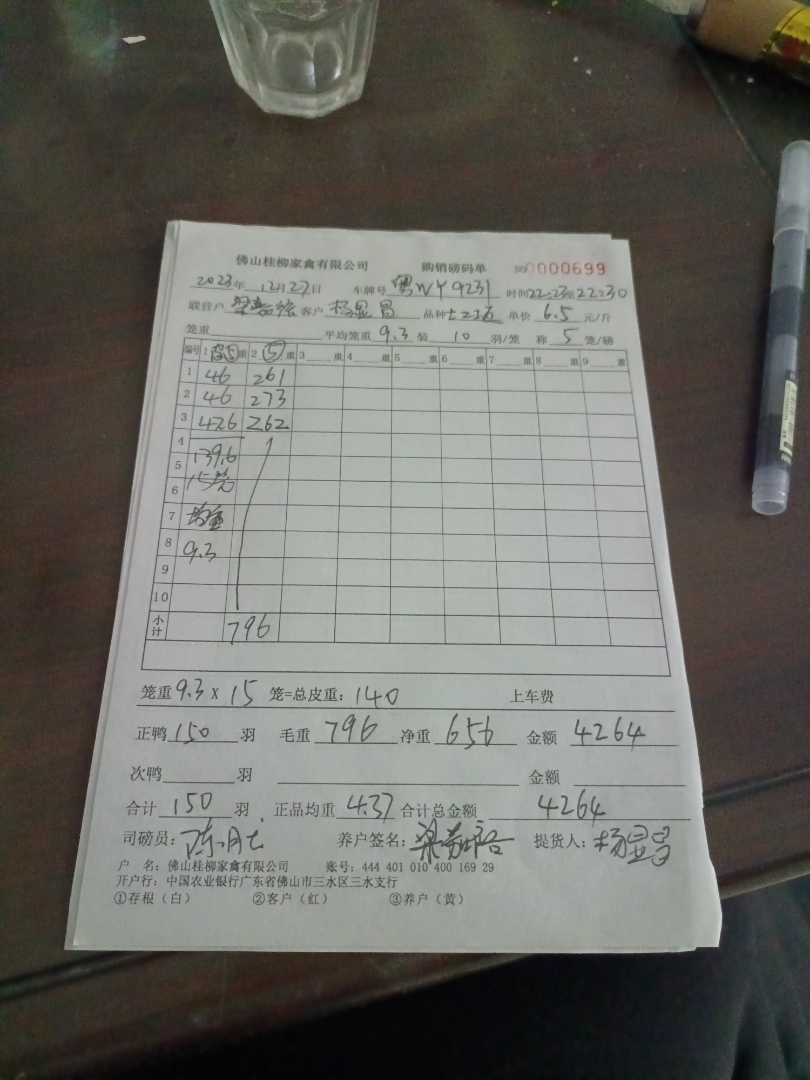 佛山桂柳家禽有限公司 购销磅码单 NO 0000699
2023年 12月27日 车牌号 粤WY9231 时间22:23至22:30
联营户 客户 杨显昌 品种 单价 6.5 元/斤
笼重 平均笼重 9.3 装 10 羽/笼 称 5 笼/磅
编号 1 皮⑤ 重 2 ⑤ 重 3 重 4 重 5 重 6 重 7 重 8 重 9 重
1 46 261
2 46 273
3 47.6 262
4
5 139.6
6 15笼
7 均重
8 9.3
9
10
小计 796
笼重 9.3 X 15 笼=总皮重: 140 上车费
正鸭 150 羽 毛重 796 净重 656 金额 4264
次鸭 羽 金额
合计 150 羽 正品均重 4.37 合计总金额 4264
司磅员: 养户签名: 提货人: 杨显昌
户 名: 佛山桂柳家禽有限公司 账号: 444 401 010 400 169 29
开户行: 中国农业银行广东省佛山市三水区三水支行
①存根（白） ②客户（红） ③养户（黄）